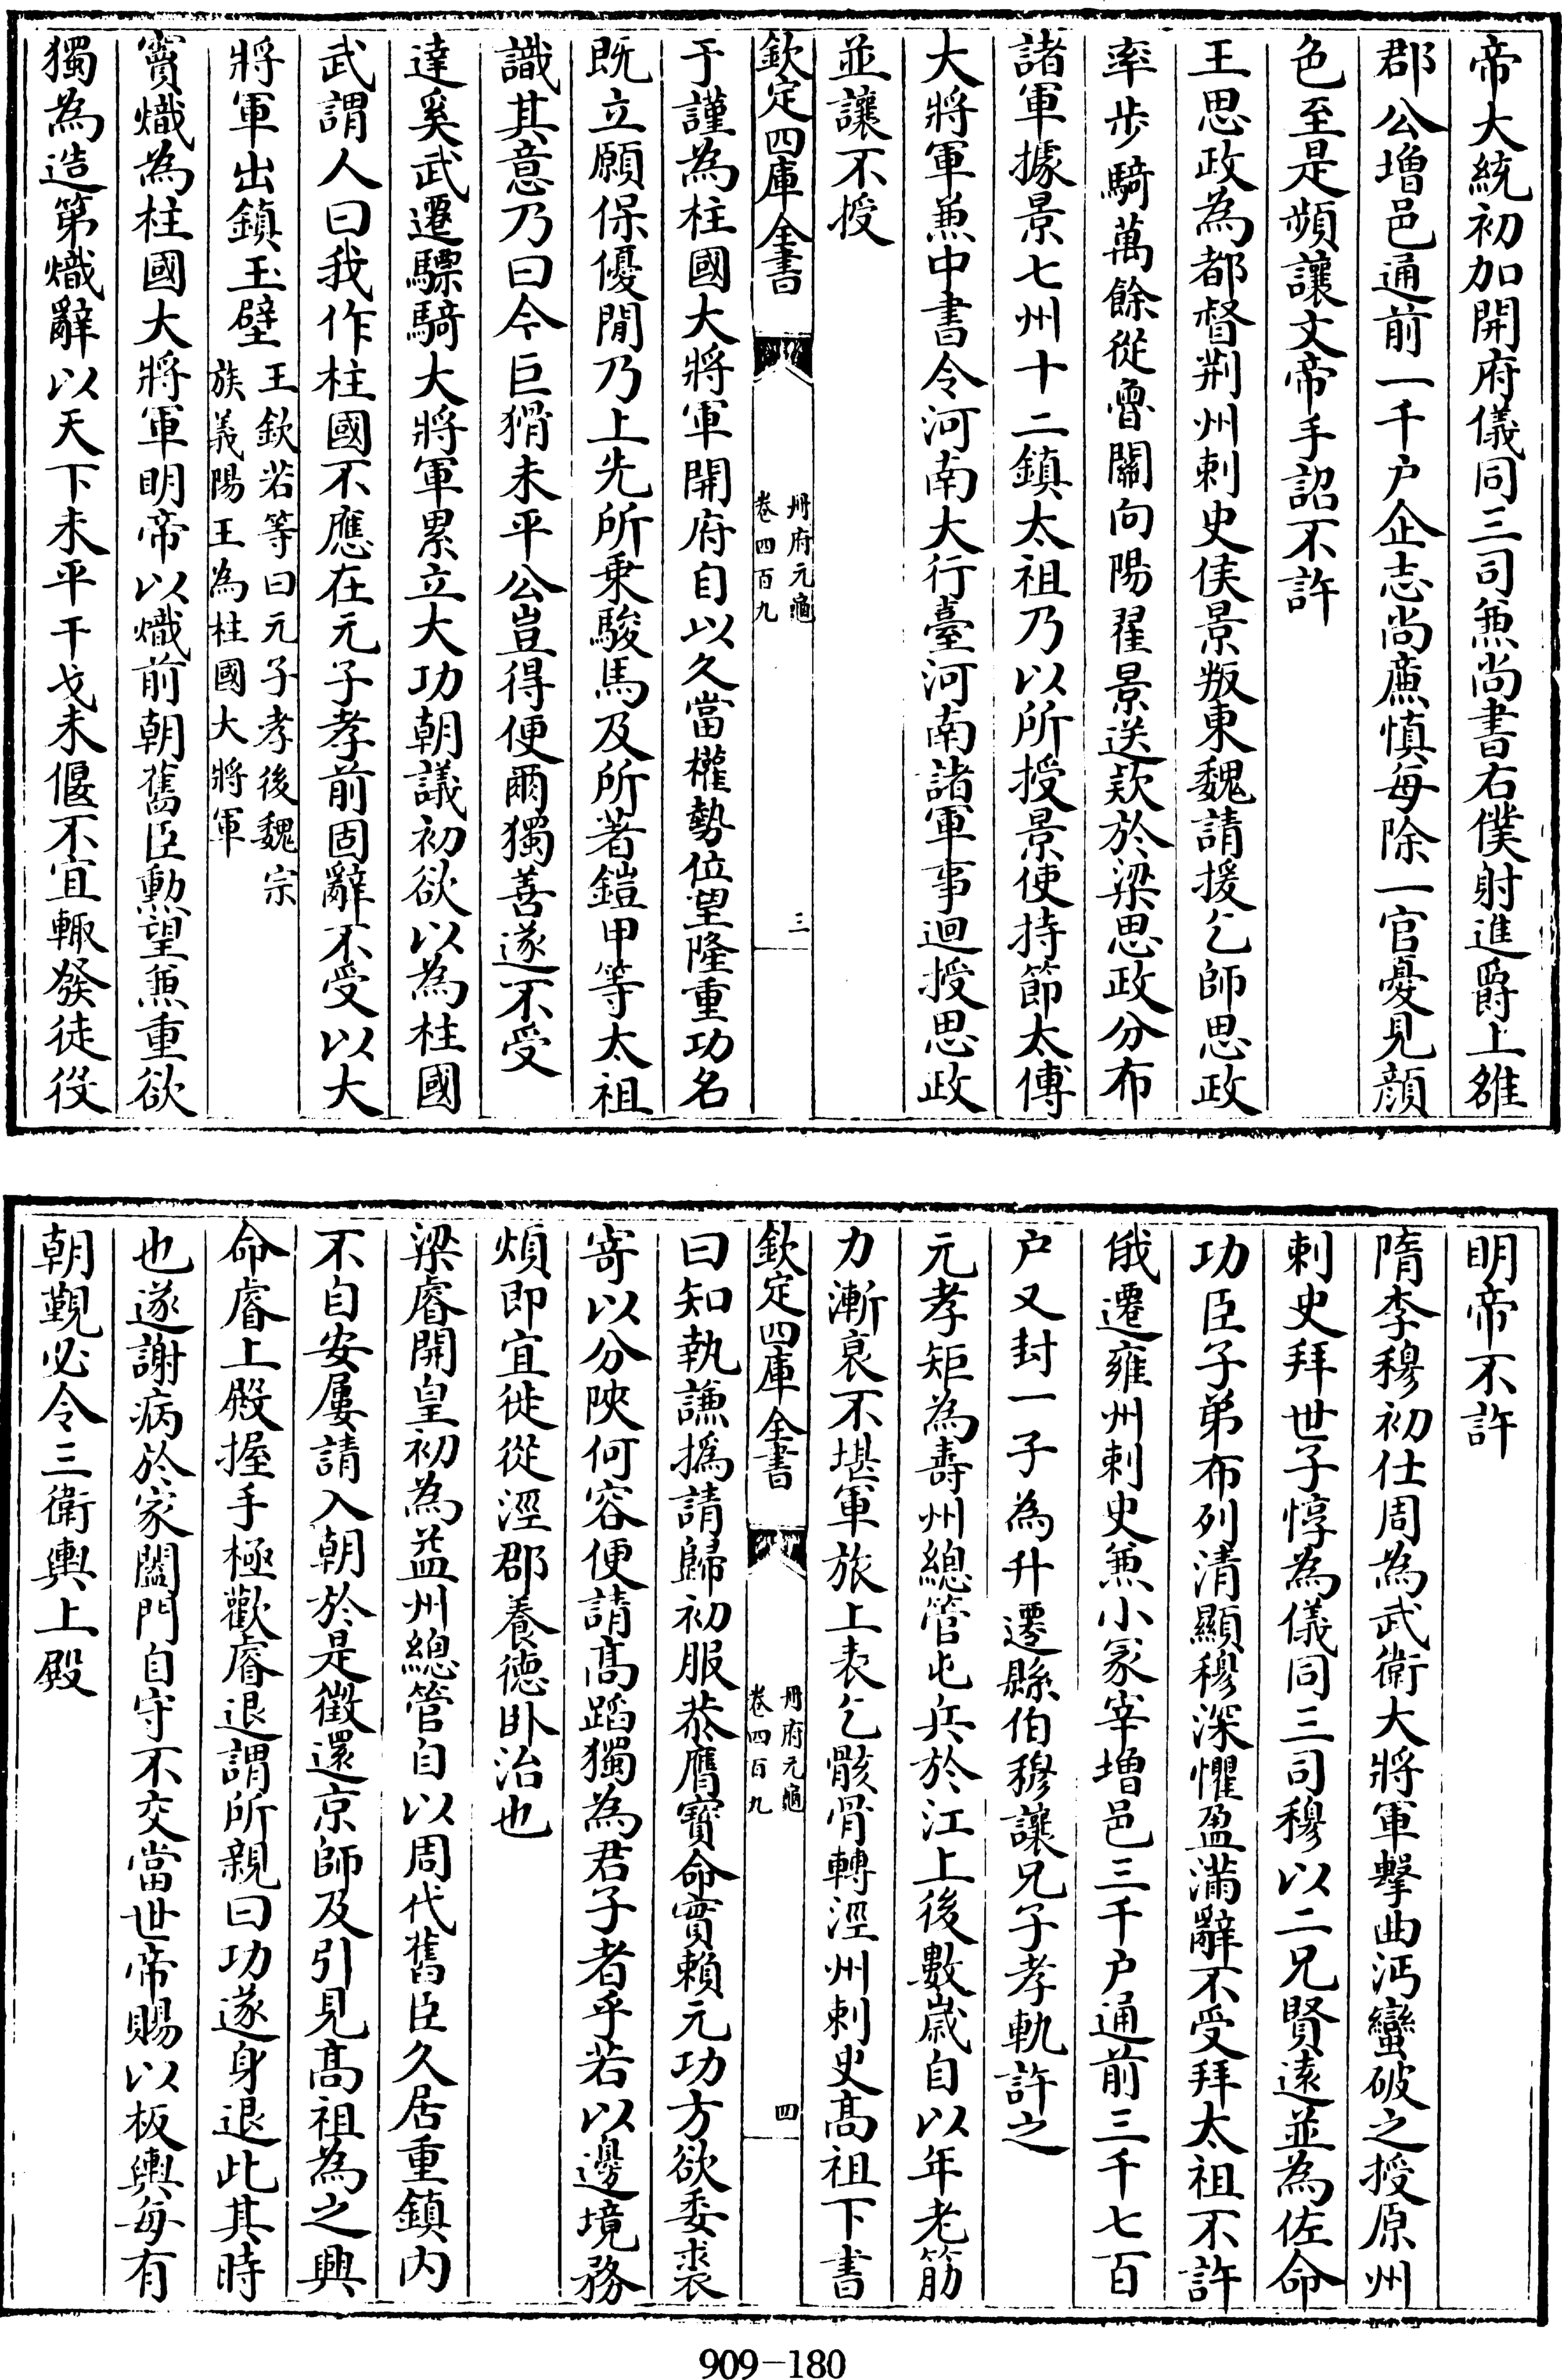 帝大統初加開府儀同三司兼尚書右僕射進爵上雒
郡公增邑通前一千户企志尚廉慎每除一官憂見顔
色至是頻讓文帝手詔不許
王思政為都督荆州刺史侯景叛東魏請援乞師思政
率步騎萬餘從魯關向陽翟景送欵於梁思政分布
諸軍據景七州十二鎮太祖乃以所授景使持節太傅
大將軍兼中書令河南大行臺河南諸軍事迴授思政
並讓不授
欽定四庫全書
冊府元龜
卷四百九
三
于謹為柱國大將軍開府自以久當權勢位望隆重功名
既立願保優閒乃上先所乗駿馬及所著鎧甲等太祖
識其意乃曰今巨猾未平公豈得便爾獨善遂不受
達奚武遷驃騎大將軍累立大功朝議初欲以為柱國
武謂人曰我作柱國不應在元子孝前固辭不受以大
將軍出鎮玉壁
王欽若等曰元子孝後魏宗
族義陽王為柱國大將軍
竇熾為柱國大將軍明帝以熾前朝舊臣勳望兼重欲
獨為造第熾辭以天下未平干戈未偃不宜輙發徒役
明帝不許
隋李穆初仕周為武衛大將軍擊曲沔蠻破之授原州
刺史拜世子惇為儀同三司穆以二兄賢遠並為佐命
功臣子弟布列清顯穆深懼盈滿辭不受拜太祖不許
俄遷雍州刺史兼小冢宰增邑三千户通前三千七百
户又封一子為升遷縣伯穆讓兄子孝軌許之
元孝矩為壽州總管屯兵於江上後數歲自以年老筋
力漸衰不堪軍旅上表乞骸骨轉涇州刺史髙祖下書
欽定四庫全書
冊府元龜
卷四百九
四
曰知執謙撝請歸初服恭膺寶命實賴元功方欲委裘
寄以分陜何容便請髙蹈獨為君子者乎若以邊境務
煩即宜徙從涇郡養德卧治也
梁睿開皇初為益州總管自以周代舊臣久居重鎮内
不自安屢請入朝於是徵還京師及引見髙祖為之興
命睿上殿握手極歡睿退謂所親曰功遂身退此其時
也遂謝病於家闔門自守不交當世帝賜以板輿每有
朝覲必令三衛輿上殿
909-180